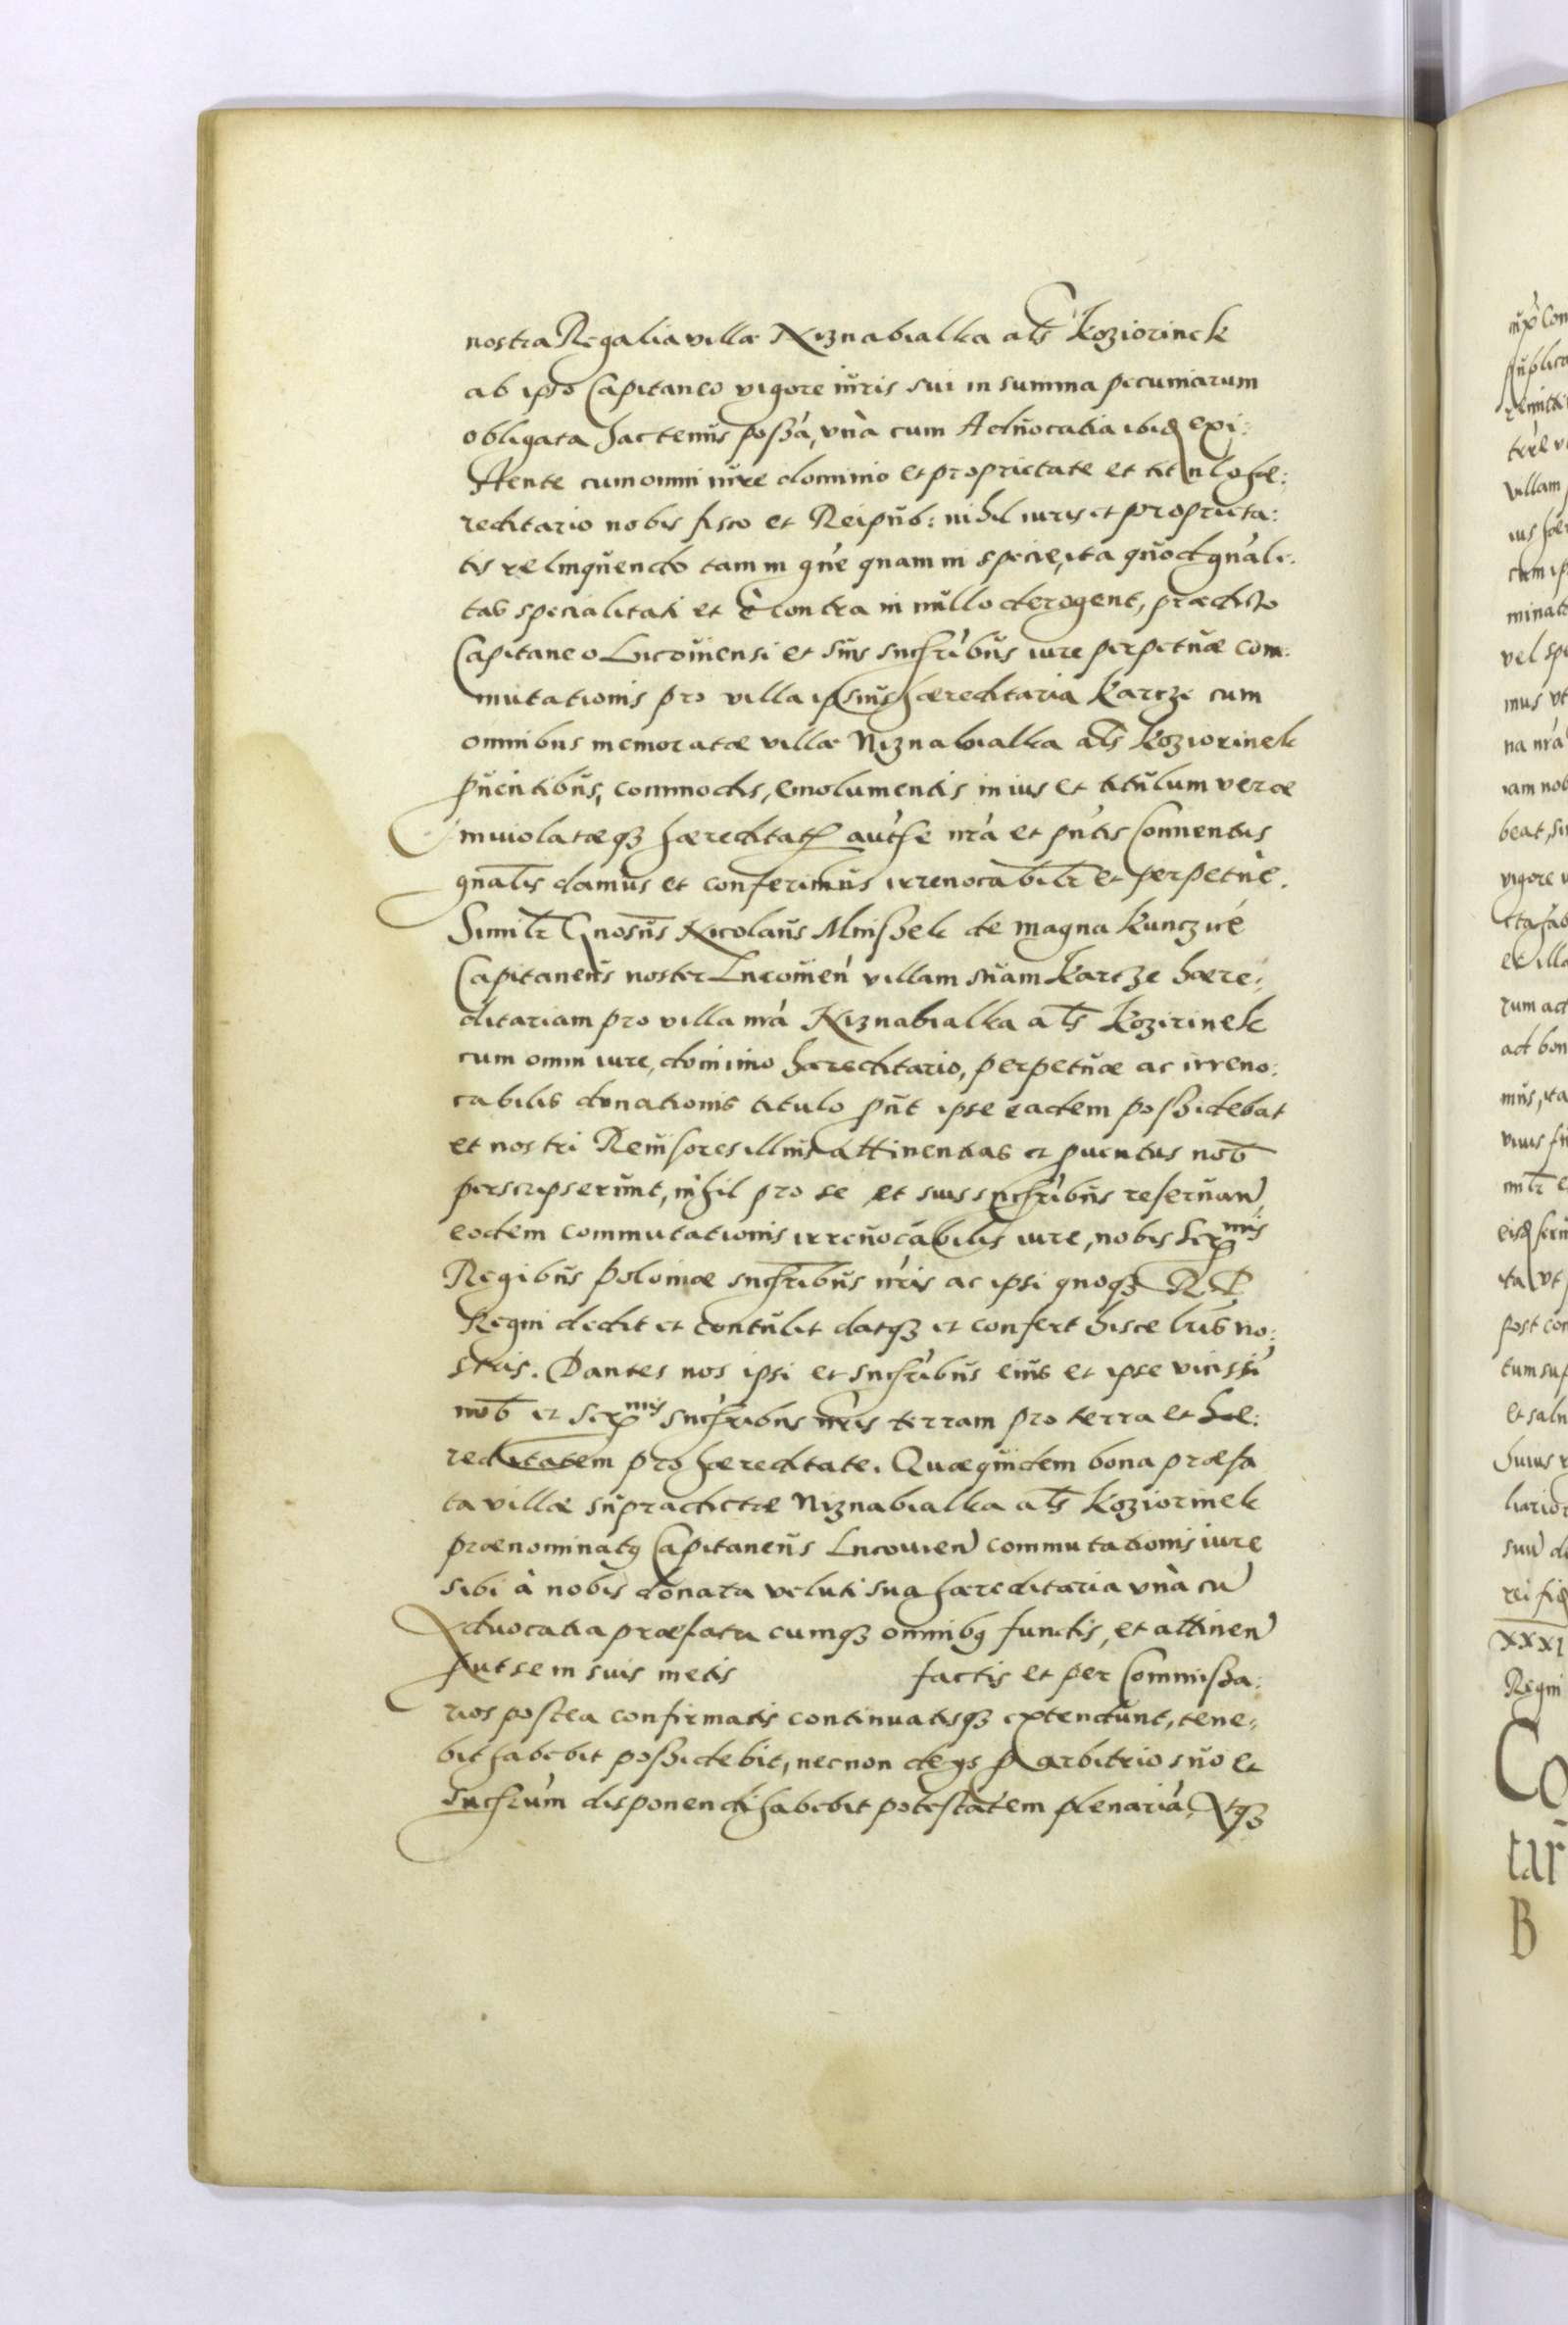 nostra Regalia villæ Niznabialka al̃s Koziorinek
ab ipso Capitaneo vigore iuris sui in summa pecuniarum
obligata hactenus possa, vnà cum Aduocatia ibid exi:
stente cum omni iure dominio et proprietate et titulo hæ:
reditario nobis fisco et Reipub: nihil iuris et proprieta:
tis relinquendo tam in gn̄e quam in specie, ita quod gn̄ali:
tas specialitati et è contra in nullo derogent, prædicto
Capitaneo Lucouiensi et suis succr̄ibus iure perpetuæ com:
mutationis pro villa ipsius hæreditaria Karcze cum
omnibus memoratæ villæ Niznabialka al̃s Koziorinek
puentibus, commodis, emolumentis in ius et titulum veræ
inuiolatæq3 hæreditatis aut̃he nr̃a et pn̄tis Conuentus
gn̄alis damus et conferimus irreuocabilr̃ et perpetuè.
Similr̃ Gnosus Nicolaus Mnissek de magna Kunczicé
Capitaneus noster Lucouien̄ villam suam Karcze hære:
ditariam pro villa nr̃a Niznabialka al̃s Kozirinek
cum omni iure, dominio hæreditario, perpetuæ ac irreuo:
cabilis donationis titulo put ipse eadem possidebat
et nostri Reuisores illius attinentias et puentus nob̃
perscripserunt, nihil pro se et suis succr̄ibus reseruan̄,
eodem commutationis irreuocabilis iure, nobis Ser̃mis
Regibus poloniæ succr̄ibus nr̃is ac ipsi quoq3 R. P.
Regni dedit et contulit datq3 et confert hisce lr̃is no:
stris. Dantes nos ipsi et succr̄ibus eius et ipse vicissī
nob̃ et Ser̃mis succr̄ibus nr̃is terram pro terra et hæ:
reditatem pro hæreditate. Quæquidem bona præfa
ta villæ supradictæ Niznabialka al̃s Koziorinek
prænominatus Capitaneus Lucouien̄ commutationis iure
sibi à nobis donata veluti sua hæreditaria vnà cū
Aduocatia præfata cumq3 omnibus fundis, et attinen̄
put se in suis metis factis et per Commissa:
rios postea confirmatis continuatisq3 extendunt, tene:
bit habebit possidebit, necnon de ijs p arbitrio suo et
Succr̄um disponendi habebit potestatem plenariā, Atq3